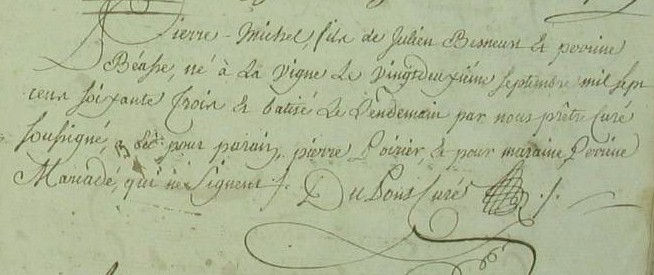 Pierre-Michel, fils de Julien Besneux et perrine
Béasse, né à La Vigne Le Vingtdeuxième Septembre mil sept
cens soixante trois et batisé Le Lendemain par nous prêtre Curé
soussigné, a été pour parain, pierre Poirier, et pour maraine, Perrine
Manadé, qui ne signent /. DuPont Curé /.